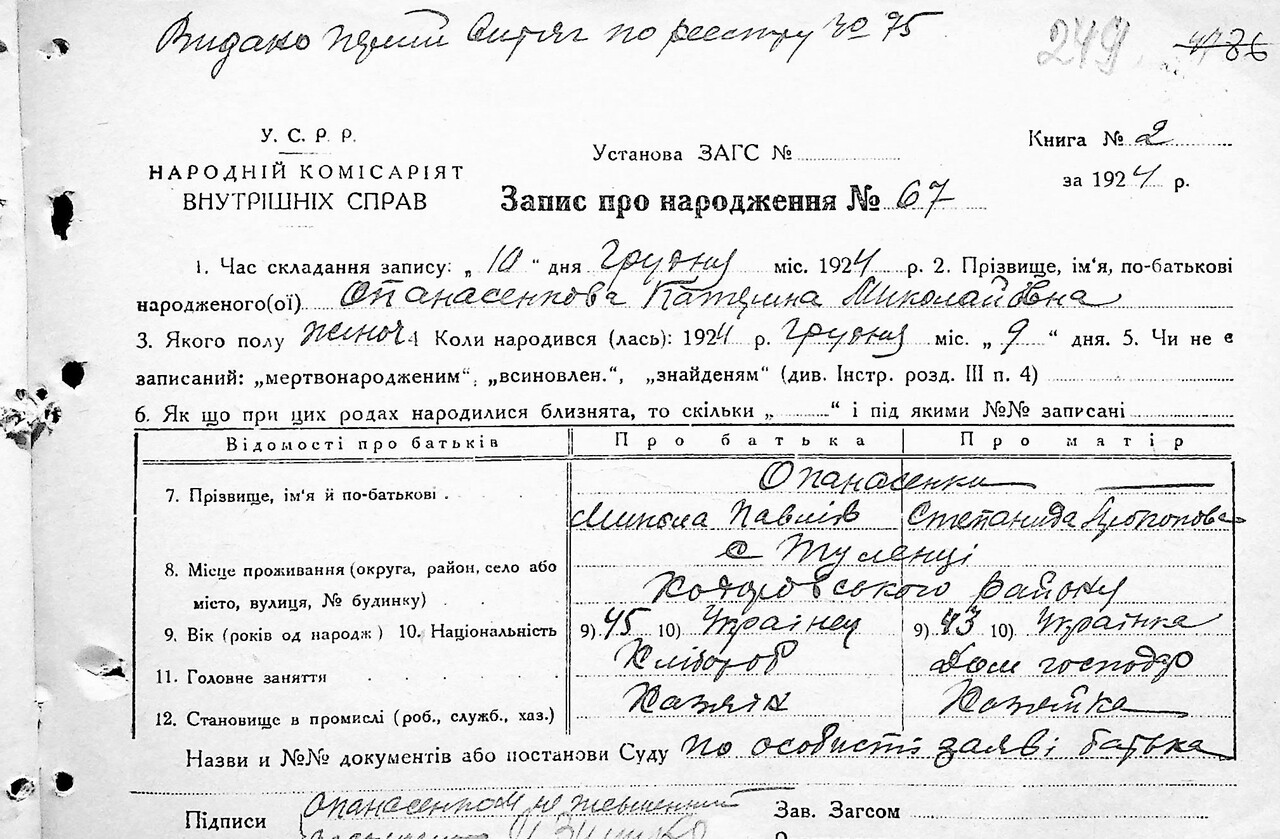 Видано перший Витяг по реєстру № 75
249 4786
У. С. Р. Р.
НАРОДНІЙ КОМІСАРІЯТ
ВНУТРІШНІХ СПРАВ
Установа ЗАГС №
Книга № 2
за 1924 р.
Запис про народження № 67
1. Час складання запису: „ 10 “ дня Грудня міс. 1924 р. 2. Прізвище, ім'я, по-батькові
народженого(ої) Опанасенкова Катерина Миколайовна
3. Якого полу жіноч 4 Коли народився (лась): 1924 р. Грудня міс. „ 9 “ дня. 5. Чи не є
записаний: „мертвонародженим“, „всиновлен.“, „знайденям“ (див. Інстр. розд. III п. 4)
6. Як що при цих родах народилися близнята, то скільки „ “ і під якими №№ записані
Відомості про батьків Про батька Про матір
7. Прізвище, ім'я й по-батькові . Опанасенки
Микола Павлів Степанида Прокопова
8. Місце проживання (округа, район, село або с Туленці
місто, вулиця, № будинку) . . Ходоровського району
9. Вік (років од народж) 10. Національність 9) 45 10) Українец 9) 43 10) Українка
11. Головне заняття . . . . . Хлібороб Дом господар
12. Становище в промислі (роб., служб., хаз.) Хазяїн Хазяйка
Назви и №№ документів або постанови Суду по особисті заяві батька
Підписи Опанасенко не
Зав. Загсом